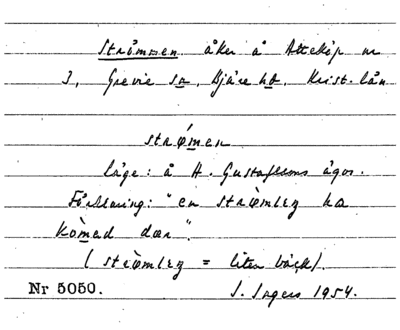 Strömmen åker å Atteköp nr
3, Grevie sn, Bjäre hd, Krist. län
strømen
läge: å H. Gustafssons ägor.
Förklaring: "en strömleŋ ha
komed dær".
(strömleŋ = liten bäck).
Nr 5050.
S. Ingers 1954.